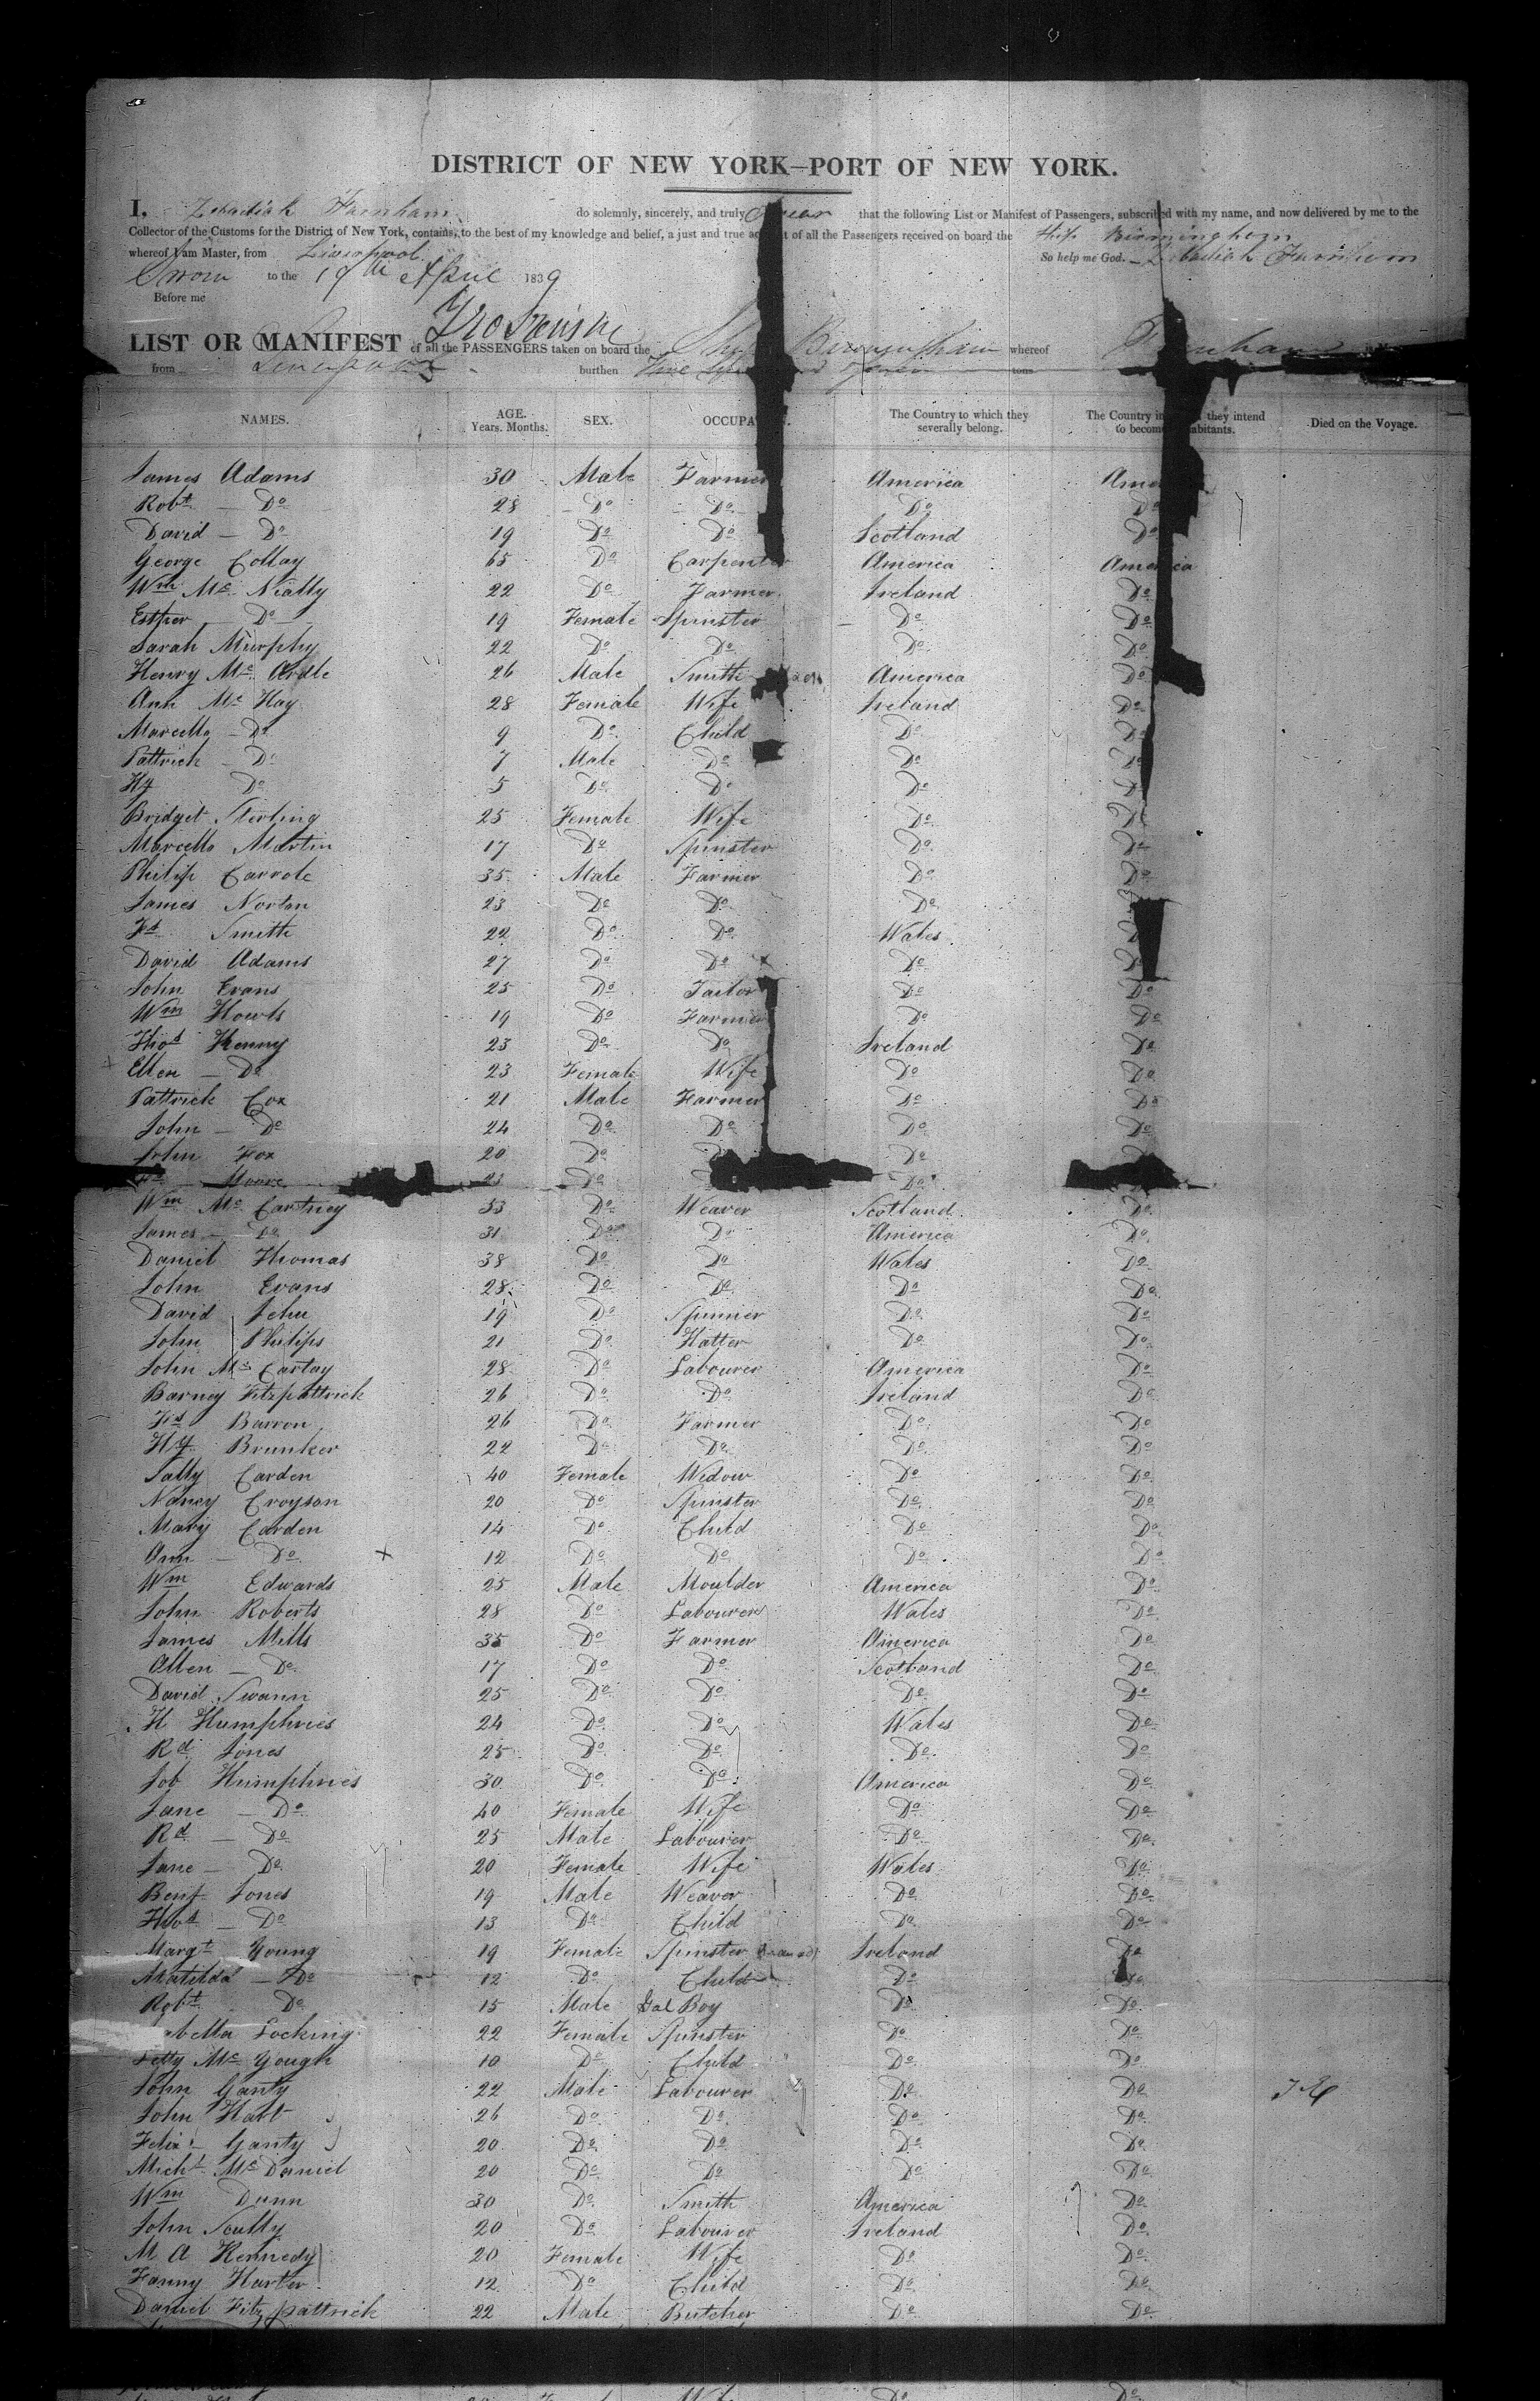 DISTRICT OF NEW YORK–PORT OF NEW YORK.
I, Zebadiah Farnham do solemnly, sincerely, and truly swear that the following List or Manifest of Passengers, subscribed with my name, and now delivered by me to the
Collector of the Customs for the District of New York, contains, to the best of my knowledge and belief, a just and true account of all the Passengers received on board the Ship Birmingham
whereof I am Master, from Liverpool. So help me God. – Zebadiah Farnham
Sworn to the 19th April 1839
Before me
LIST OR MANIFEST of all the PASSENGERS taken on board the Ship Birmingham whereof Farnham
from Liverpool burthen Five tons
NAMES. AGE. Years. Months. SEX. OCCUPA The Country to which they severally belong. The Country in they intend to become abitants. Died on the Voyage.
James Adams 30 Male Farmer America Ame
Robt — Do 28 Do Do Do Do
David — Do 19 Do Do Scotland Do
George Collay 65 Do Carpenter America America
Wm Mc Nially 22 Do Farmer Ireland Do
Esther — Do 19 Female Spinster Do Do
Sarah Murphy 22 Do Do Do Do
Henry Mc Ardle 26 Male Smith America Do
Ann Mc Hay 28 Female Wife Ireland Do
Marcella — Do 9 Do Child Do Do
Pattrick — Do 7 Male Do Do Do
Hy Do 5 Do Do Do Do
Bridget Sterling 25 Female Wife Do Do
Marcella Martin 17 Do Spinster Do Do
Philip Carrole 35 Male Farmer Do Do
James Norton 23 Do Do Do
Smith 22 Do Do Wales
David Adams 27 Do Do Do Do
John Evans 25 Do Tailor Do Do
Wm Howls 19 Do Farmer Do Do
Thos Kenny 23 Do Do Ireland Do
Ellen — Do 23 Female Wife Do Do
Pattrick Cox 21 Male Farmer Do Do
John — Do 24 Do Do Do Do
John Fox 20 Do Do
Moore Do Do
Wm Mc Cartney 33 Do Weaver Scotland Do
James — Do 31 Do Do America Do
Daniel Thomas 38 Do Do Wales Do
John Evans 28 Do Do Do Do
David Jehu 19 Do Spinner Do Do
John Philips 21 Do Hatter Do Do
John Mc Cartay 28 Do Labourer America Do
Barney Fitzpattrick 26 Do Do Ireland Do
Barron 26 Do Farmer Do Do
Hy Brunker 22 Do Do Do Do
Sally Carden 40 Female Widow Do Do
Nancy Croyson 20 Do Spinster Do Do
Mary Carden 14 Do Child Do Do
Ann — Do 12 Do Do Do Do
Wm Edwards 25 Male Moulder America Do
John Roberts 28 Do Labourer Wales Do
James Mills 35 Do Farmer America Do
Allen — Do 17 Do Do Scotland Do
David Swann 25 Do Do Do Do
H Humphries 24 Do Do Wales Do
Rd Jones 25 Do Do Do Do
Job Humphries 30 Do Do America Do
Jane — Do 40 Female Wife Do Do
Rd — Do 25 Male Labourer Do Do
Jane — Do 20 Female Wife Wales Do
Benj Jones 19 Male Weaver Do Do
Thos — Do 13 Do Child Do Do
Margt Young 19 Female Spinster Ireland Do
Matilda — Do 12 Do Child Do Do
Robt Do 15 Male Boy Do Do
abella Locking 22 Female Spinster Do Do
Letty Mc Gough 10 Do Child Do Do
John Ganty 22 Male Labourer Do Do
John Hart 26 Do Do Do Do
Felix — Ganty 20 Do Do Do Do
Michl Mc Daniel 20 Do Do Do Do
Wm Dunn 30 Do Smith America Do
John Scully 20 Do Labourer Ireland Do
M A Kennedy 20 Female Wife Do Do
Fanny Harter 12 Do Child Do Do
Daniel Fitzpattrick 22 Male Butcher Do Do